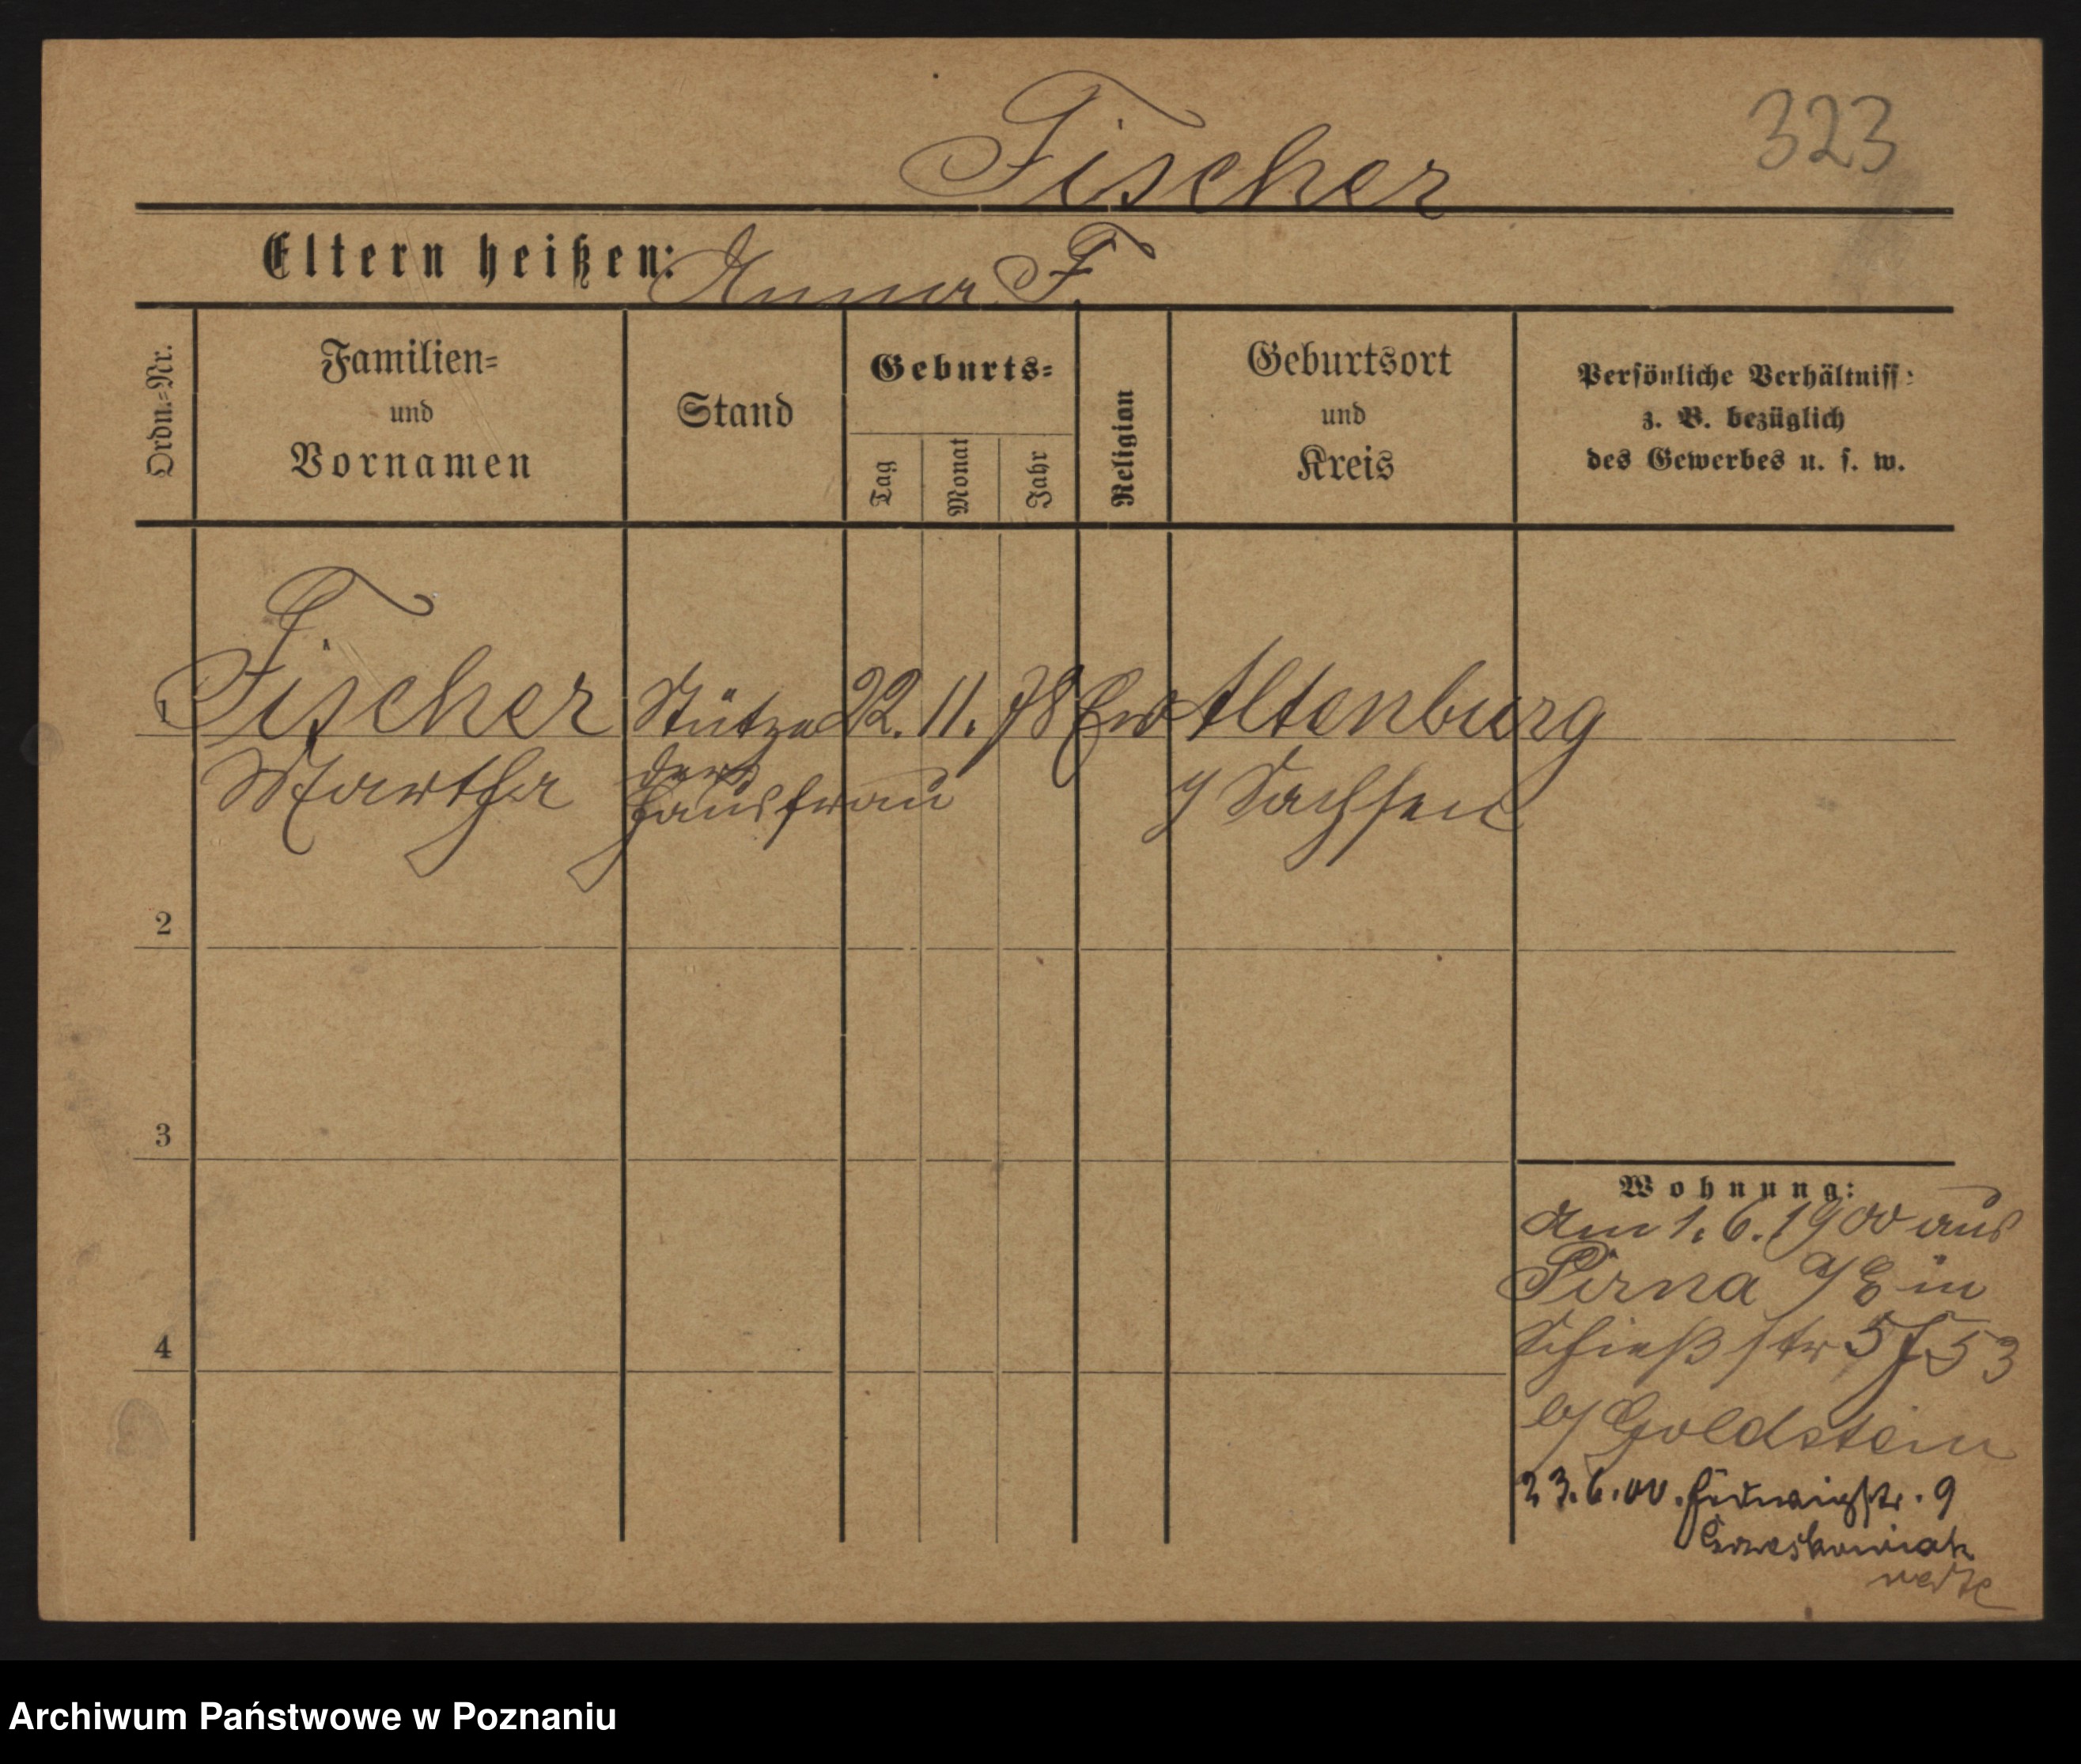 Fischer
323
Eltern heißen: Anna F.
Ordn.-Nr.
Familien-
und
Vornamen
Stand
Geburts-
Tag
Monat
Jahr
Religion
Geburtsort
und
Kreis
Persönliche Verhältniss
z. B. bezüglich
des Gewerbes u. s. w.
1 Fischer Stütze 22. 11. 78 Ev Altenburg
Martha der Hausfrau Sachsen
2
3
4
Wohnung:
Am 1. 6. 1900 aus
Pirna a/E in
Schießstr 5
b/ Goldstein
23. 6. 00. Hedwigstr. 9
Archiwum Państwowe w Poznaniu